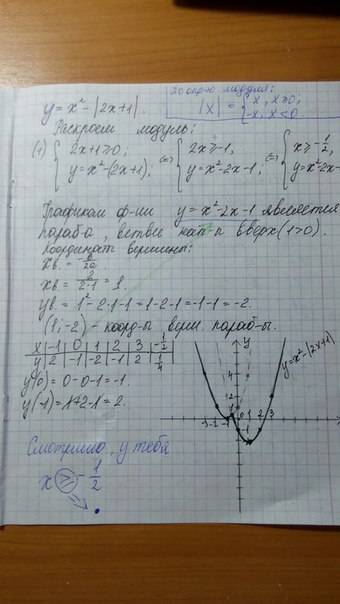 По опр-ю модуля:
y = x² - |2x+1|. |x| = { x, x≥0, -x, x<0
Раскроем модуль:
(1) { 2x+1≥0; y=x²-(2x+1); ⇔ { 2x≥-1, y=x²-2x-1; ⇔ { x≥-1/2, y=x²-2x-
Графиком ф-ии y=x²-2x-1 является
параб-а, ветви нап-ы вверх (1>0).
Координат вершины:
xв = -b/2a
xв = 2/2·1 = 1.
yв = 1²-2·1-1 = 1-2-1 = -1-1 = -2.
(1; -2) - коорд-ы верш параб-ы.
x | -1 | 0 | 1 | 2 | 3 | -1/2
y | 2 | -1 | -2 | -1 | 2 | 1/4
y(0) = 0-0-1 = -1.
y(-1) = 1+2-1 = 2.
y
y=x²-|2x+1|
-3 -2 -1 0 1 2 3
Смотрим, у тебя
x ≥ -1/2